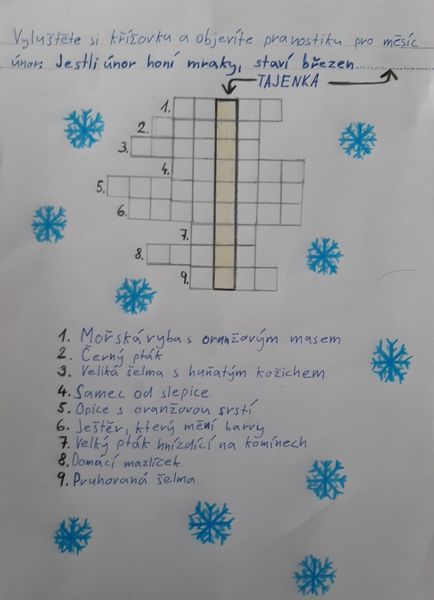 Vyluštěte si křížovku a objevíte pranostiku pro měsíc
únor: Jestli únor honí mraky, staví březen..............
TAJENKA
1.
2.
3.
4.
5.
6.
7.
8.
9.
1. Mořská ryba s oranžovým masem
2. Černý pták
3. Veliká šelma s huňatým kožichem
4. Samec od slepice
5. Opice s oranžovou srstí
6. Ještěr, který mění barvy
7. Velký pták hnízdící na komínech
8. Domácí mazlíček
9. Pruhovaná šelma